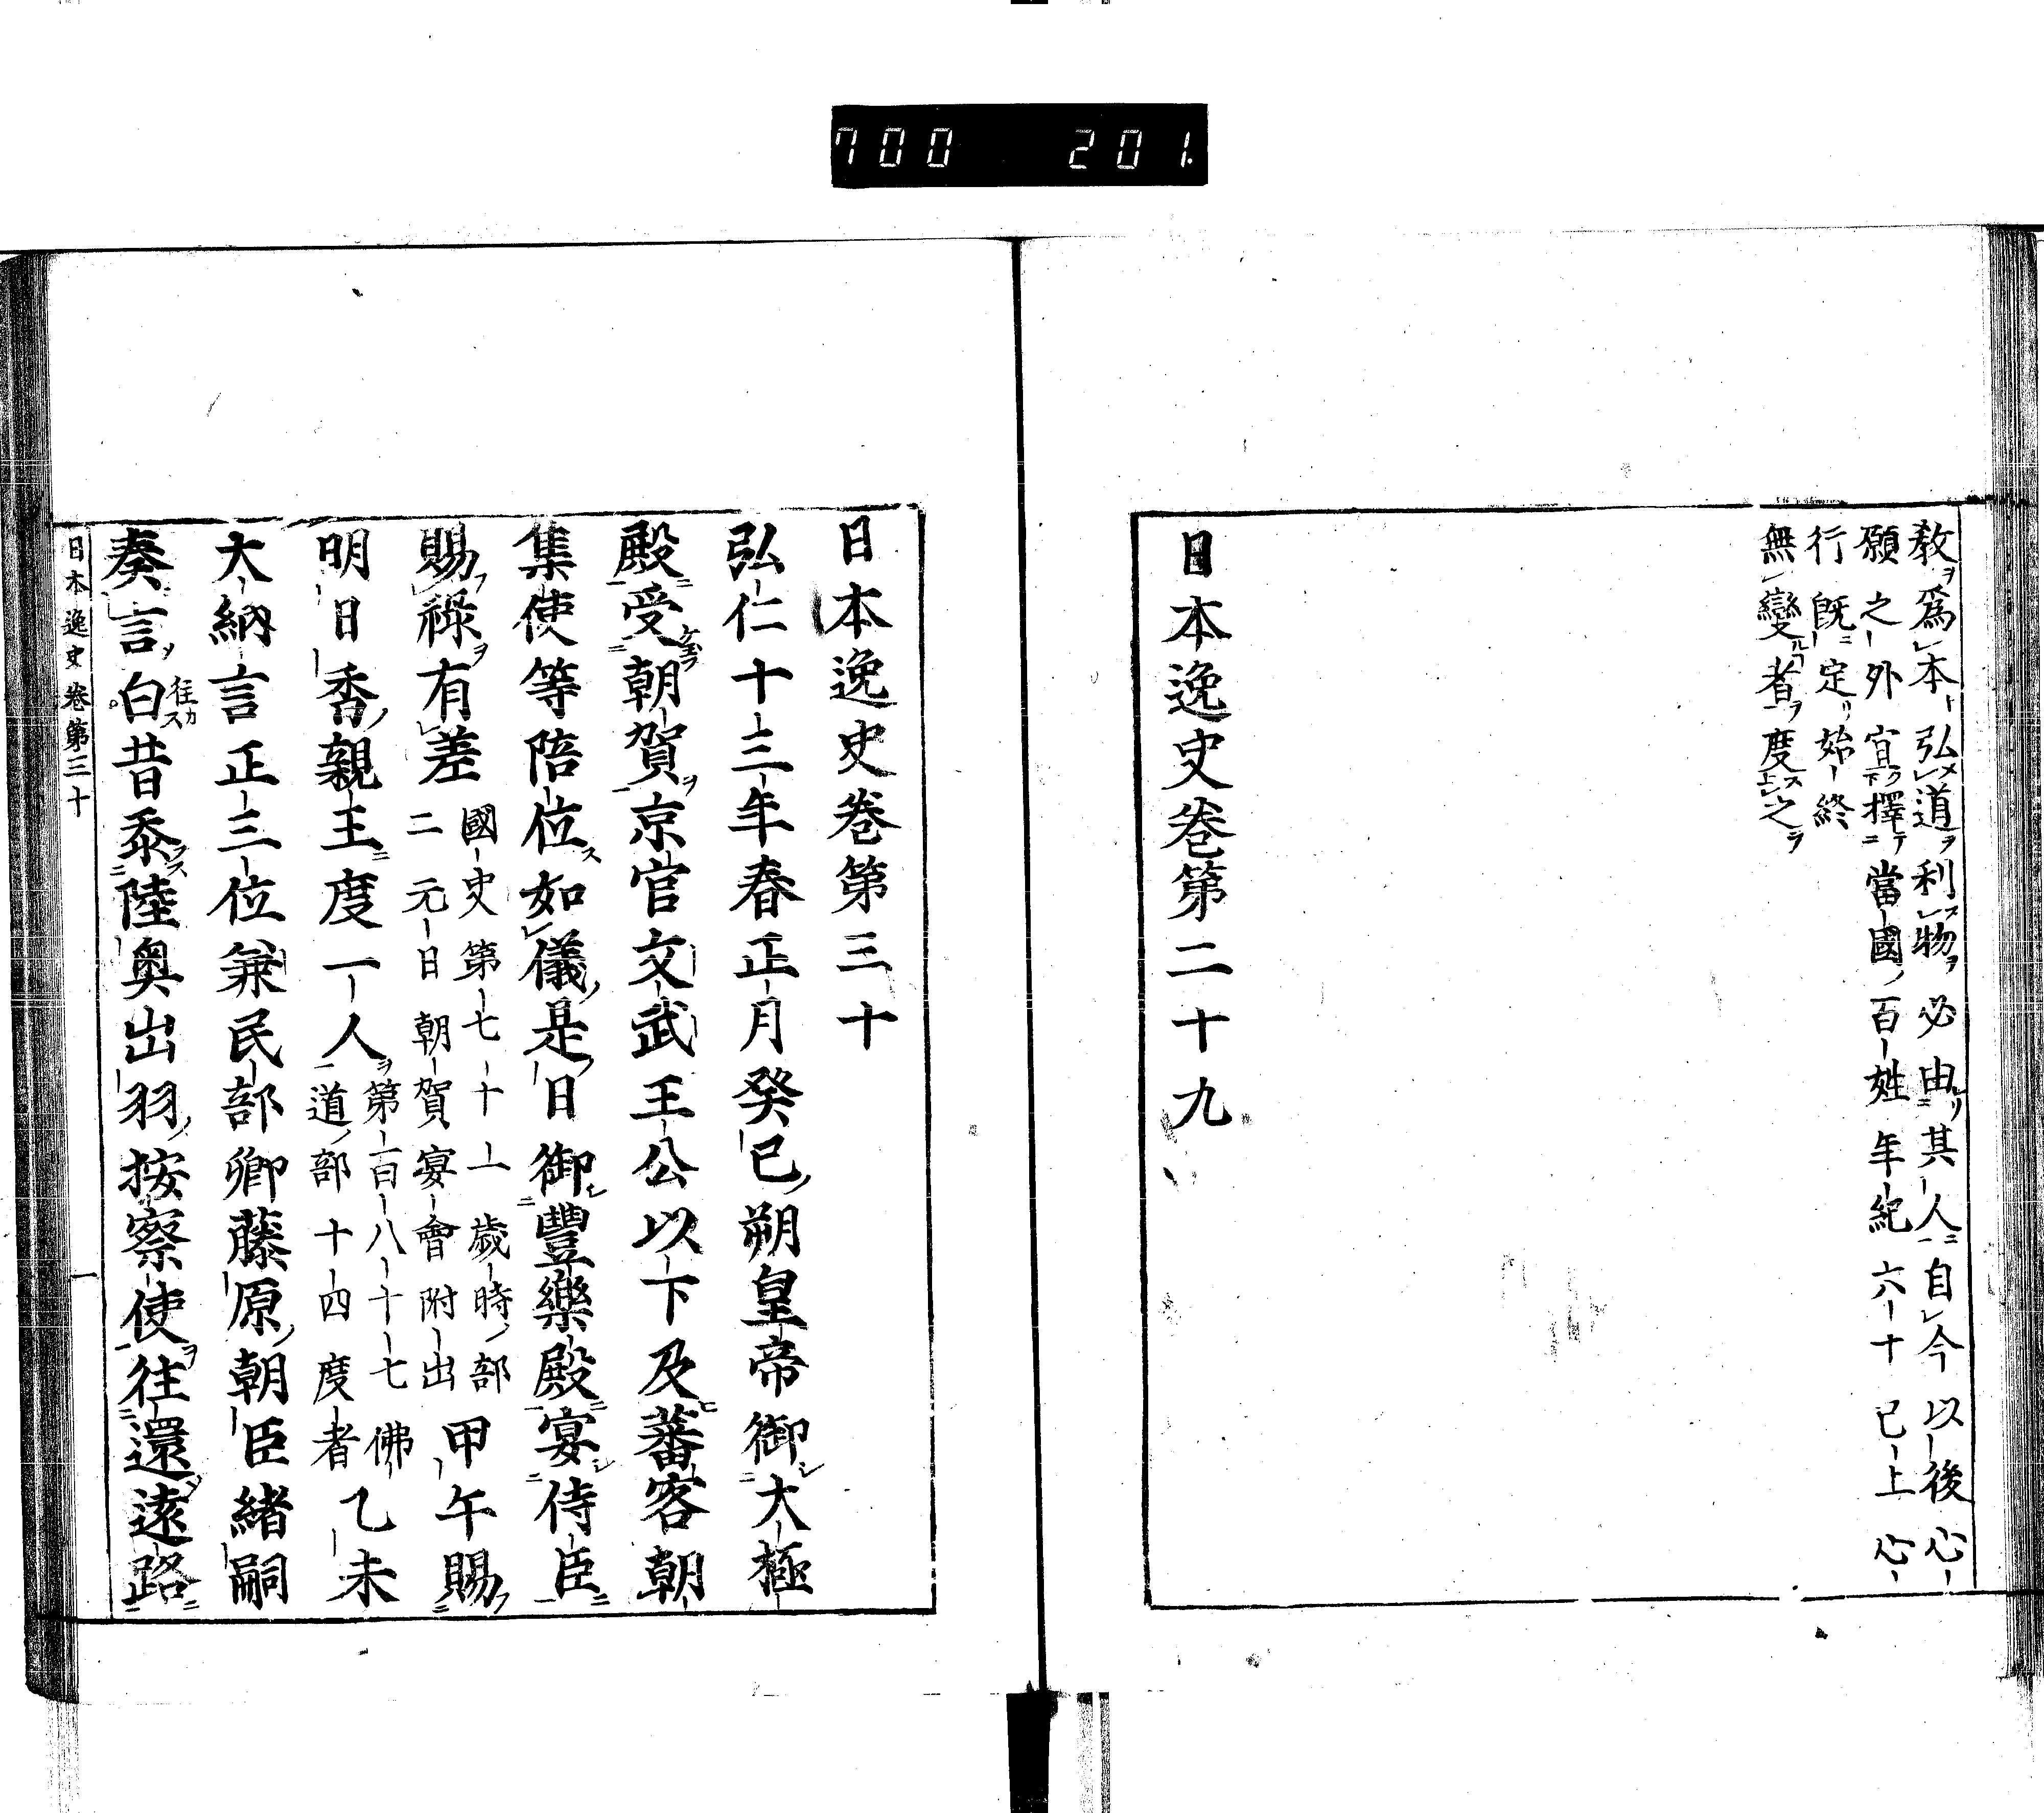 700 201.
教爲本弘道利物必由其人自今以後心
願之外宜擇當國百姓年紀六十已上心
行既定始終
無變者度之
日本逸史卷第二十九
日本逸史卷第三十
弘仁十三年春正月癸巳朔皇帝御大極
殿受朝賀京官文武王公以下及蕃客朝
集使等陪位如儀是日御豐樂殿宴侍臣
賜祿有差
國史第七十一歲時部
二元日朝賀宴會附出
甲午賜
明日香親王度一人
第一百八十七佛
道部十四度者
乙未
大納言正三位兼民部卿藤原朝臣緒嗣
奏言白昔忝陸奧出羽按察使往還遠路
日本逸史 卷第三十
一